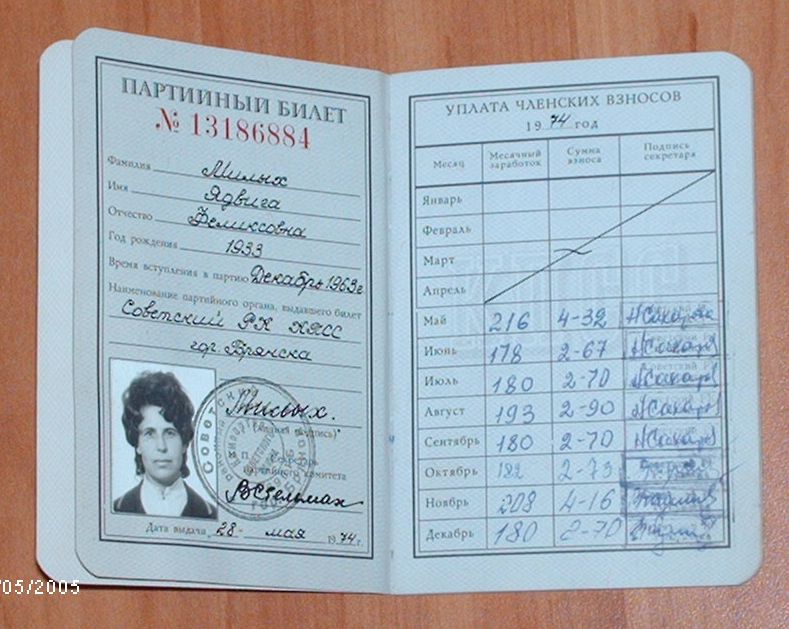 ПАРТИЙНЫЙ БИЛЕТ
№ 13186884
Фамилия Милых
Имя Ядвига
Отчество Феликсовна
Год рождения 1933
Время вступления в партию Декабрь 1963г
Наименование партийного органа, выдавшего билет
Советский РК КПСС
гор. Брянска
Милых.
(личная подпись)
М. П. Секретарь
партийного комитета
Дата выдачи 28 мая 1974 г.
УПЛАТА ЧЛЕНСКИХ ВЗНОСОВ
1974 год
Месяц Месячный заработок Сумма взноса Подпись секретаря
Январь
Февраль
Март
Апрель
Май 216 4-32
Июнь 178 2-67
Июль 180 2-70
Август 193 2-90
Сентябрь 180 2-70
Октябрь 182 2-73
Ноябрь 208 4-16
Декабрь 180 2-70
/05/2005